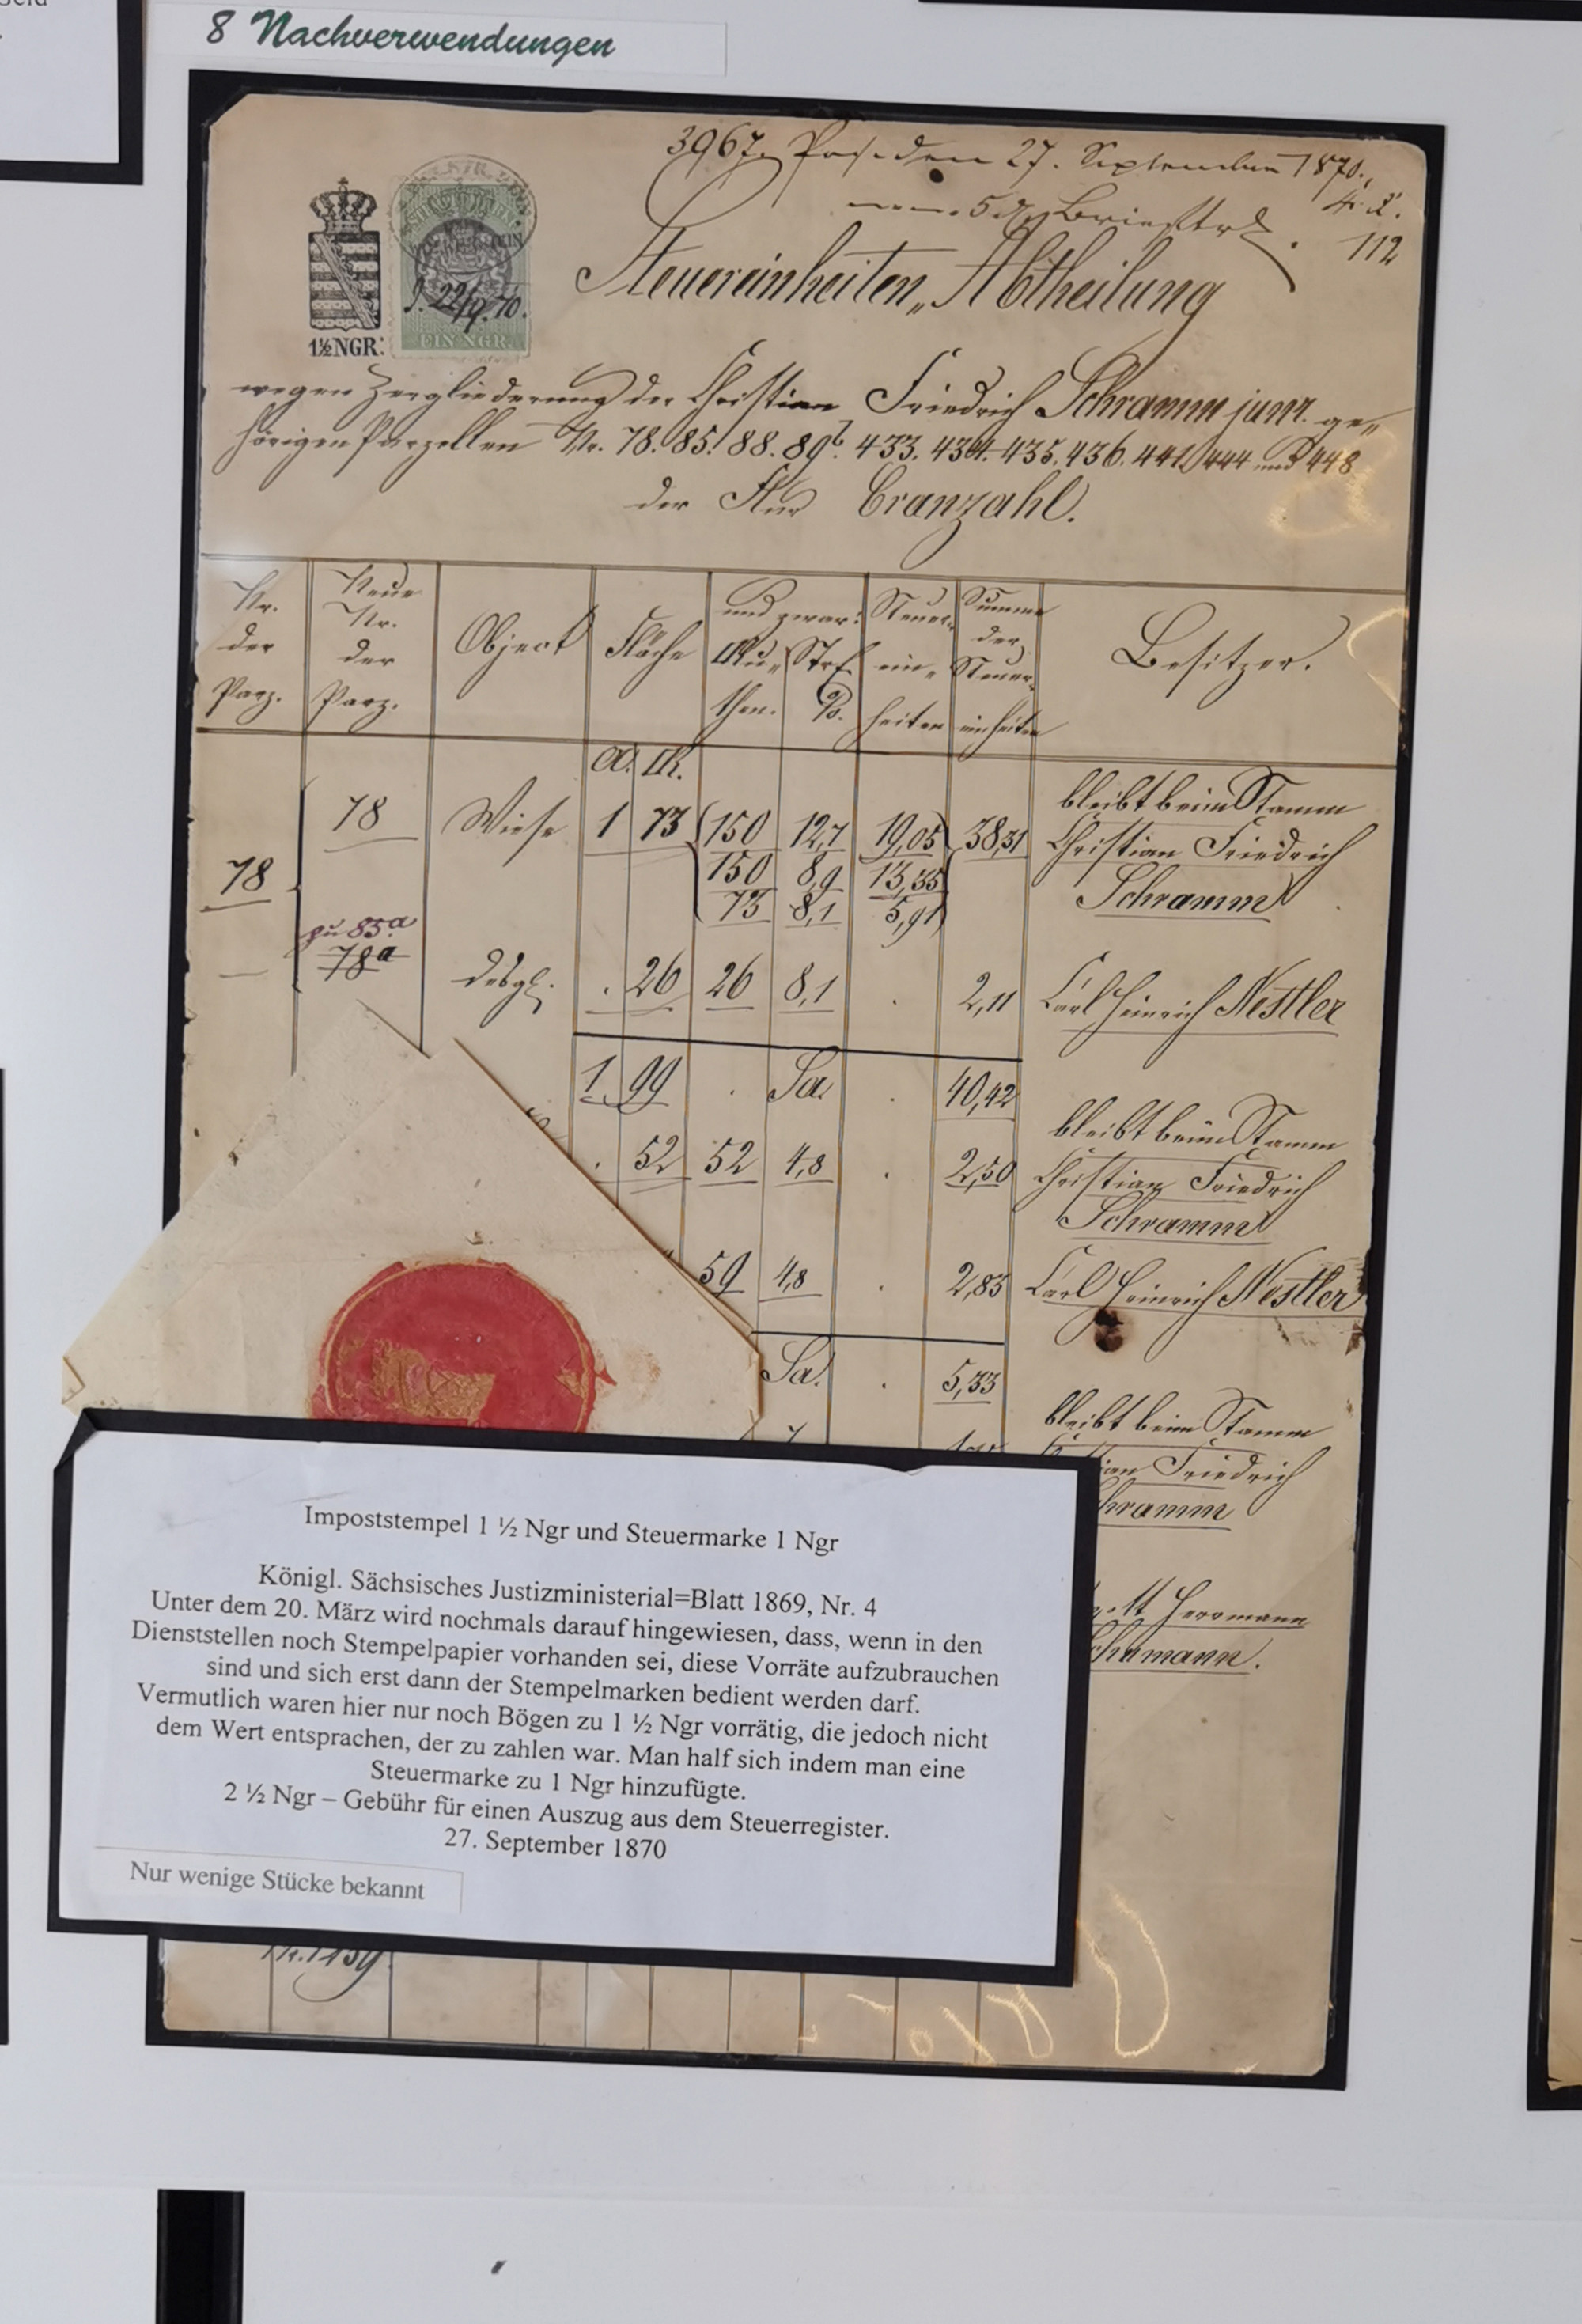 8 Nachverwendungen
3967. den 27. September 1870.
112
Steuereinheiten-Abtheilung
1½ NGR.
J. 22/9. 70.
EIN NGR.
wegen Zergliederung der Christian Friedrich Schramm junr. ge-
hörigen Parzellen Nr. 78. 85. 88. 89b. 433. 434. 435. 436. 441. 444 und 448
der Flur Cranzahl.
Nr. der Parz.
Neue Nr. der Parz.
Object
Fläche
und zwar:
Ru-then.
Steuer-ein-heiten
Summe der Steuer-einheiten
Besitzer.
A. R.
bleibt beim Stamm
78 Wiese 1 73 150 12,7 19,05 38,31 Christian Friedrich
78 150 8,9 13,35 Schramm
73 8,1 5,91
zu 85a
78a desgl. . 26 26 8,1 . 2,11 Carl Heinrich Nestler
1 99 . Sa. . 40,42
bleibt beim Stamm
. 52 52 4,8 . 2,50 Christian Friedrich
Schramm
59 4,8 . 2,83 Carl Heinrich Nestler
Sa. . 5,33
bleibt beim Stamm
Friedrich
Herrmann
Impoststempel 1 ½ Ngr und Steuermarke 1 Ngr
Königl. Sächsisches Justizministerial=Blatt 1869, Nr. 4
Unter dem 20. März wird nochmals darauf hingewiesen, dass, wenn in den
Dienststellen noch Stempelpapier vorhanden sei, diese Vorräte aufzubrauchen
sind und sich erst dann der Stempelmarken bedient werden darf.
Vermutlich waren hier nur noch Bögen zu 1 ½ Ngr vorrätig, die jedoch nicht
dem Wert entsprachen, der zu zahlen war. Man half sich indem man eine
Steuermarke zu 1 Ngr hinzufügte.
2 ½ Ngr – Gebühr für einen Auszug aus dem Steuerregister.
27. September 1870
Nur wenige Stücke bekannt